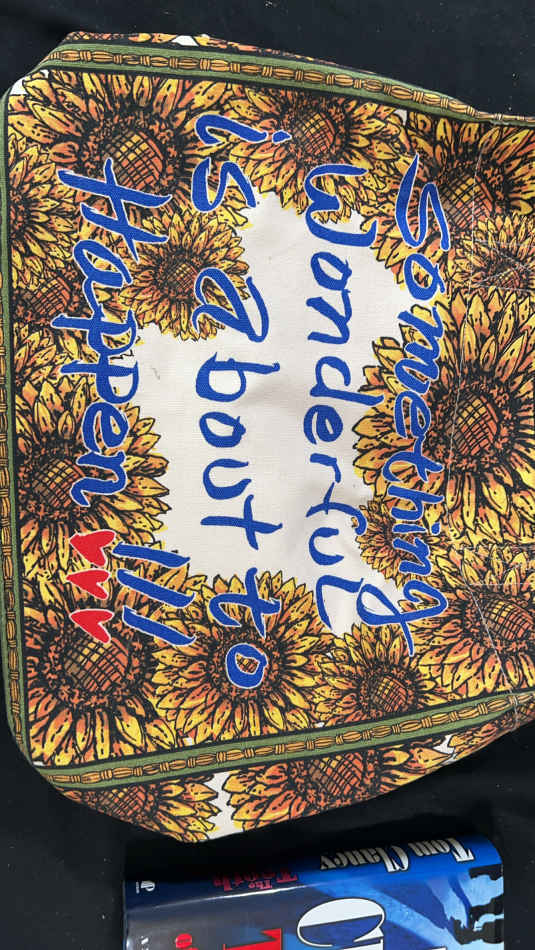 Something
Wonderful
is about to
Happen !!!
Tom Clancy
The
Teeth